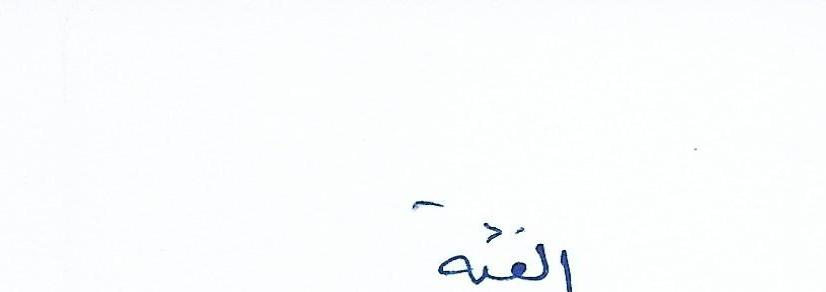 الفئة